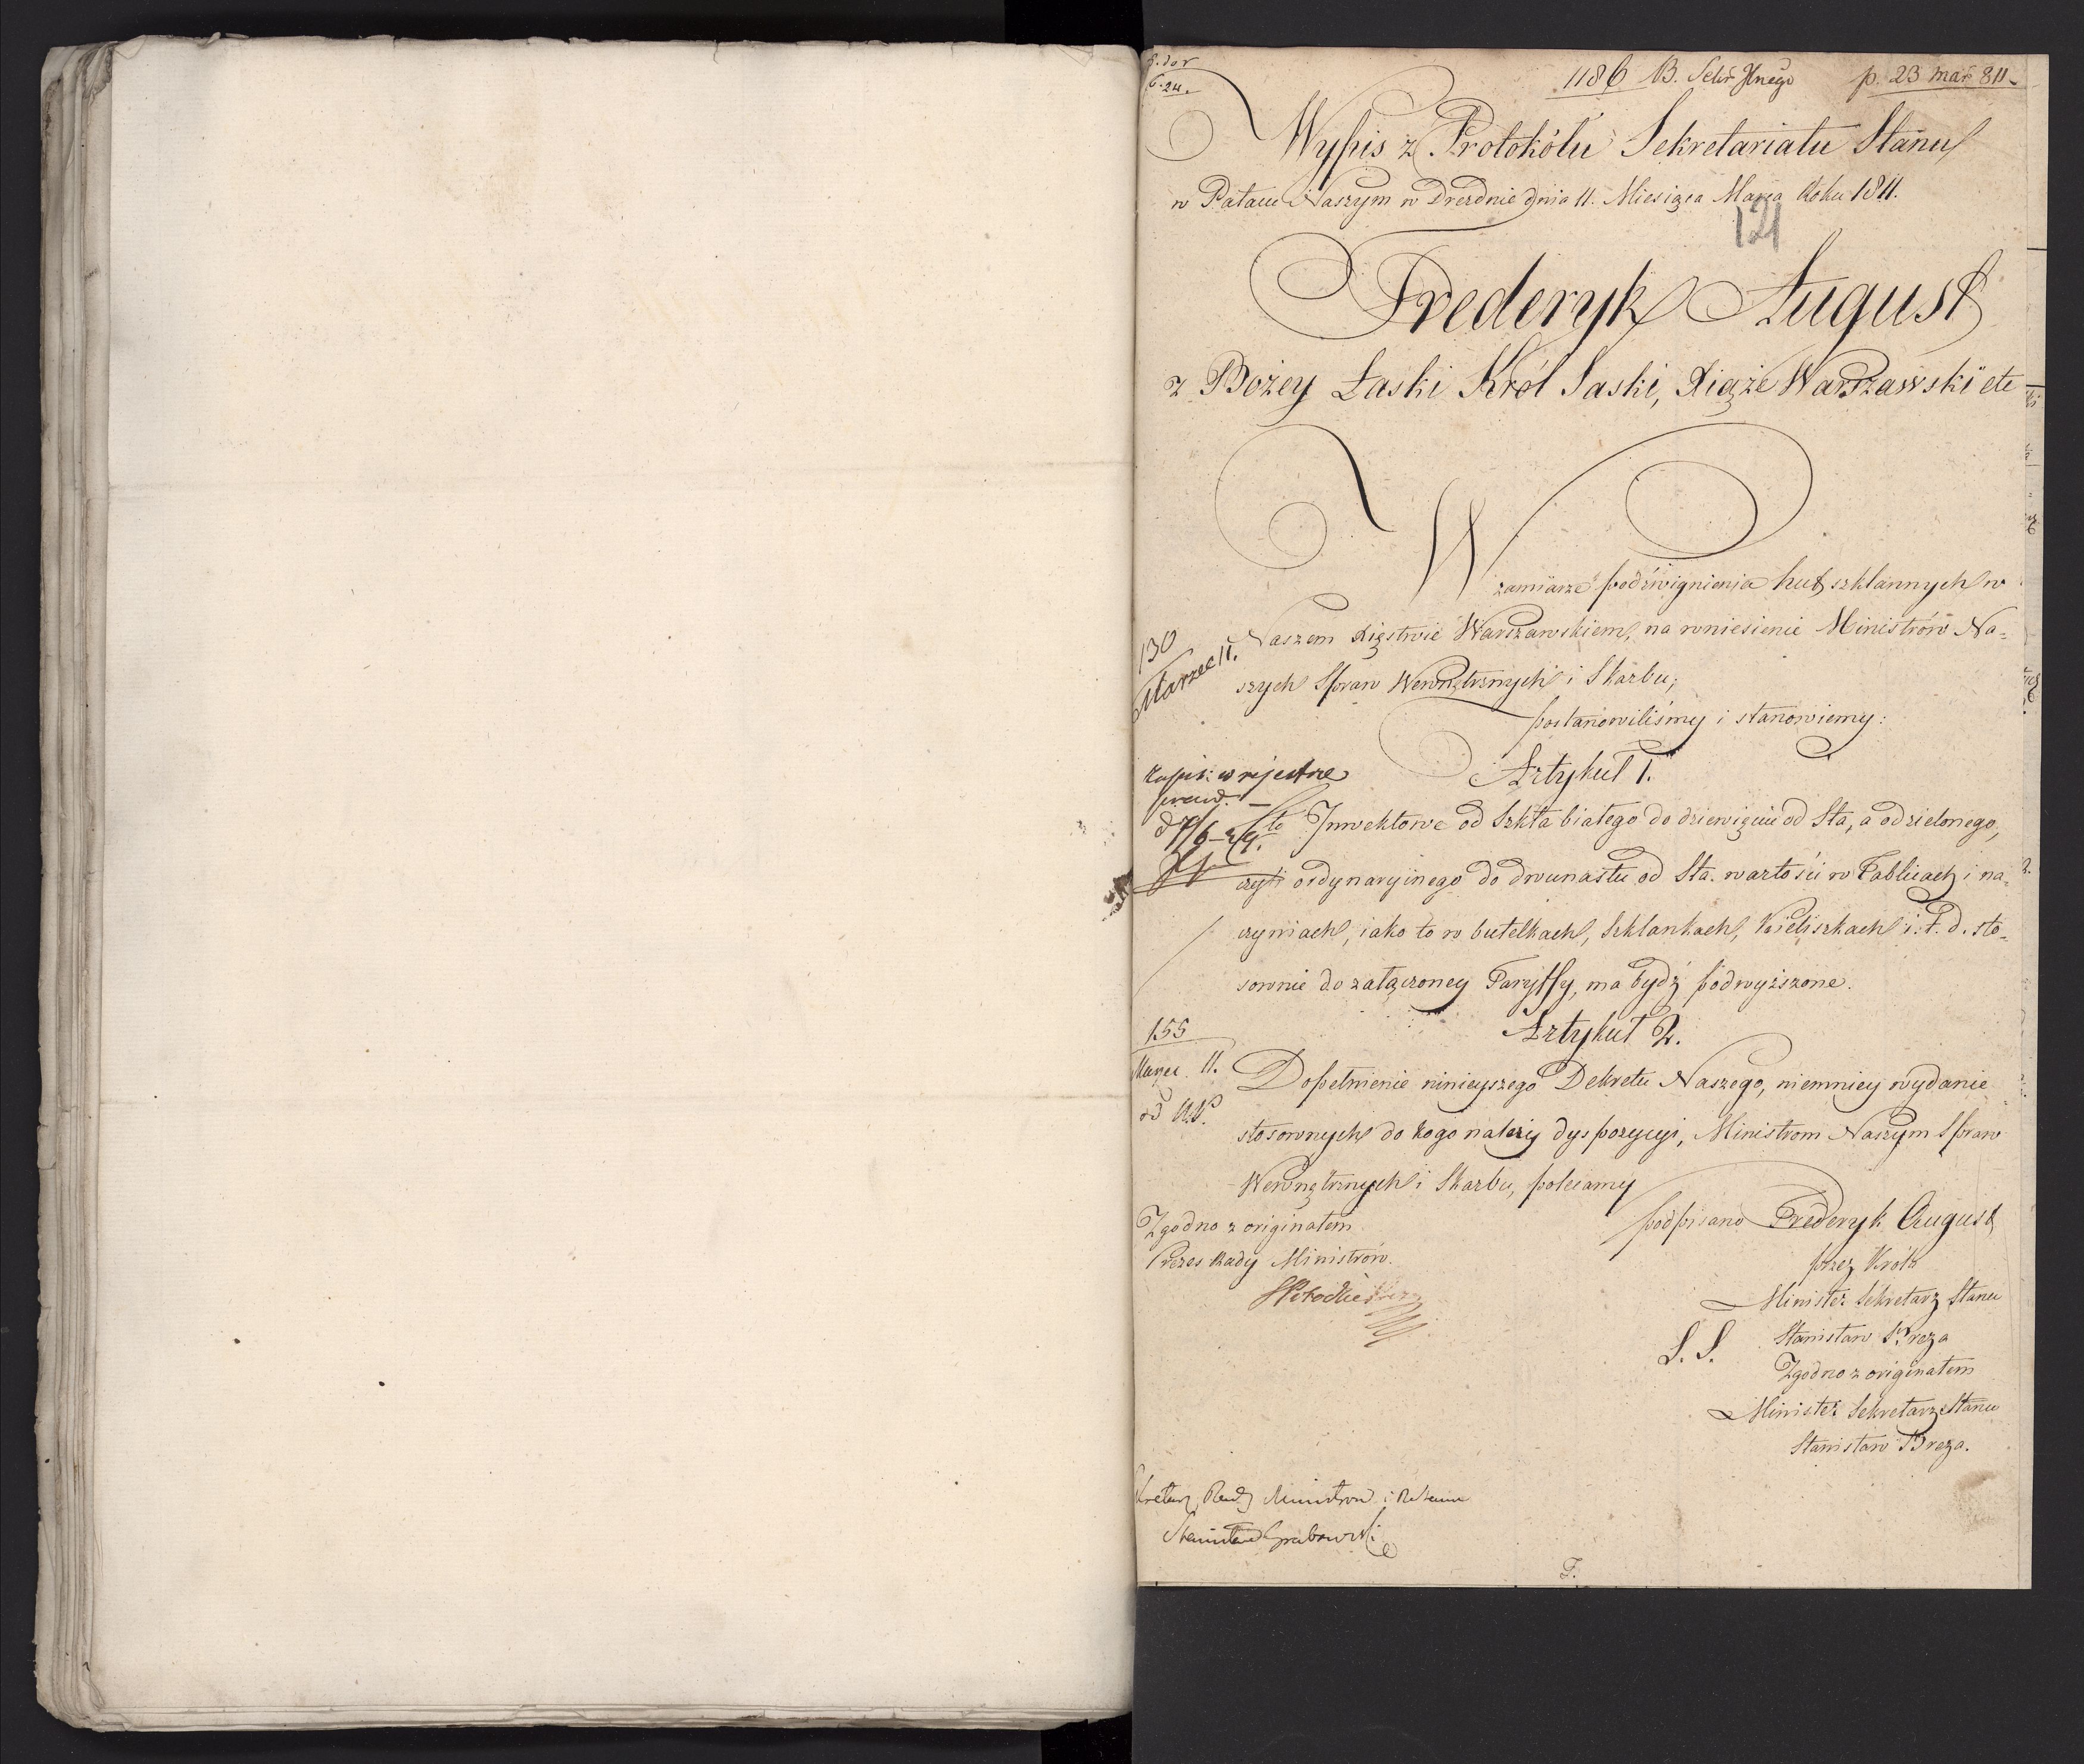 1186 B. Sekr Jlnego p. 23 mar 811
6.24.
Wypis z Protokółu Sekretariatu Stanu
w Pałacu Naszym w Dreźdnie dnia 11. Miesiąca Marca Roku 1811.
121
Frederyk August
z Bożey Łaski Król Saski, Xiąże Warszawski etc
W zamiarze podźwignienia hut szklannych w
Naszem Xięstwie Warszawskiem, na wniesienie Ministrów Na=
szych Spraw Wewnętrznych i Skarbu;
postanowiliśmy i stanowiemy:
130
Marzec 11.
Artykuł 1.
Zapis: w rejestrze
Inwektowe od Szkła białego do dziewięciu od Sta, a od zielonego,
czyli ordynaryinego do dwunastu od Sta. wartości w Tablicach i na=
czyniach, iako to w butelkach, Szklankach, Kieliszkach i. t. d. sto=
sownie do załączoney Taryffy, ma bydź podwyższone.
Artykuł 2.
155
Marzec 11.
Dopełnienie ninieyszego Dekretu Naszego, niemniey wydanie
stosownych do kogo należy dyspozycyi, Ministrom Naszym Spraw
Wewnętrznych i Skarbu, polecamy
podpisano Frederyk August
przez Króla
Minister Sekretarz Stanu
L. S. Stanisław Breza
Zgodno z originałem
Minister Sekretarz Stanu
Stanisław Breza.
Zgodno z originałem
Prezes Rady Ministrów.
Sekretarz Rady Ministrów
Stanisław Grabowski
F.